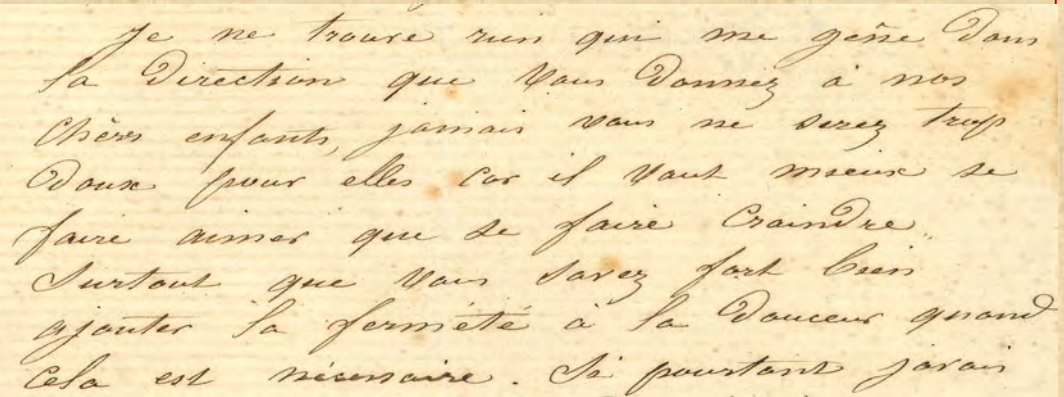 Je ne trouve rien qui me gêne dans
la direction que vous donnez à nos
chères enfants, jamais vous ne serez trop
doux pour elles car il vaut mieux se
faire aimer que se faire craindre.
Surtout que vous savez fort bien
ajouter la fermété à la douceur quand
cela est nécessaire. Si pourtant j'avais